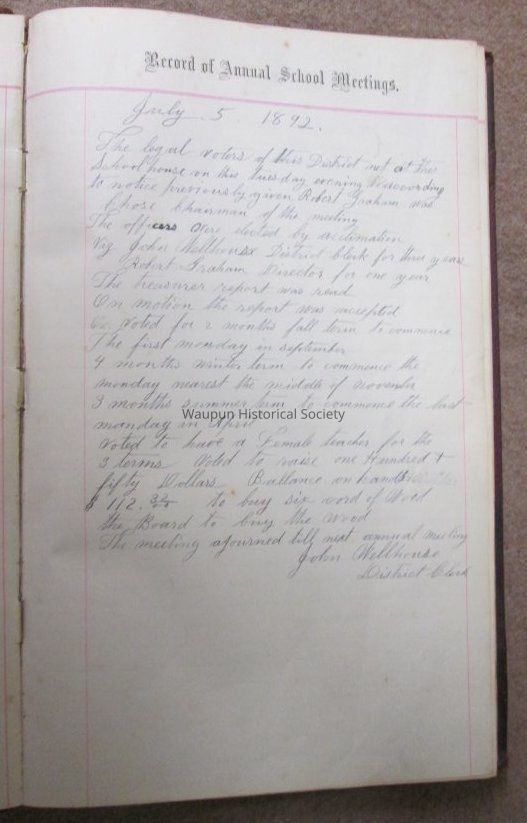 Record of Annual School Meetings.
July 5 1892.
The legal voters of this District met at the
School house on this tuesday evening according
to notice previously given Robert Graham was
Chose Chairman of the meeting
The officers were elected by acclimation
Viz John Wellhouse District Clerk for three years
Robert Graham Director for one year
The treasurer report was read
On motion the report was accepted
voted for 2 months fall term to commence
The first monday in september
4 months winter term to commence the
monday nearest the middle of november
3 months summer term to commence the last
monday in April
Waupun Historical Society
voted to have a Female teacher for the
3 terms Voted to raise one Hundred +
fifty Dollars Ballance on hand
$ 112. to buy six cord of Wood
the Board to buy the wood
The meeting ajourned till next annual meeting
John Wellhouse
District Clerk